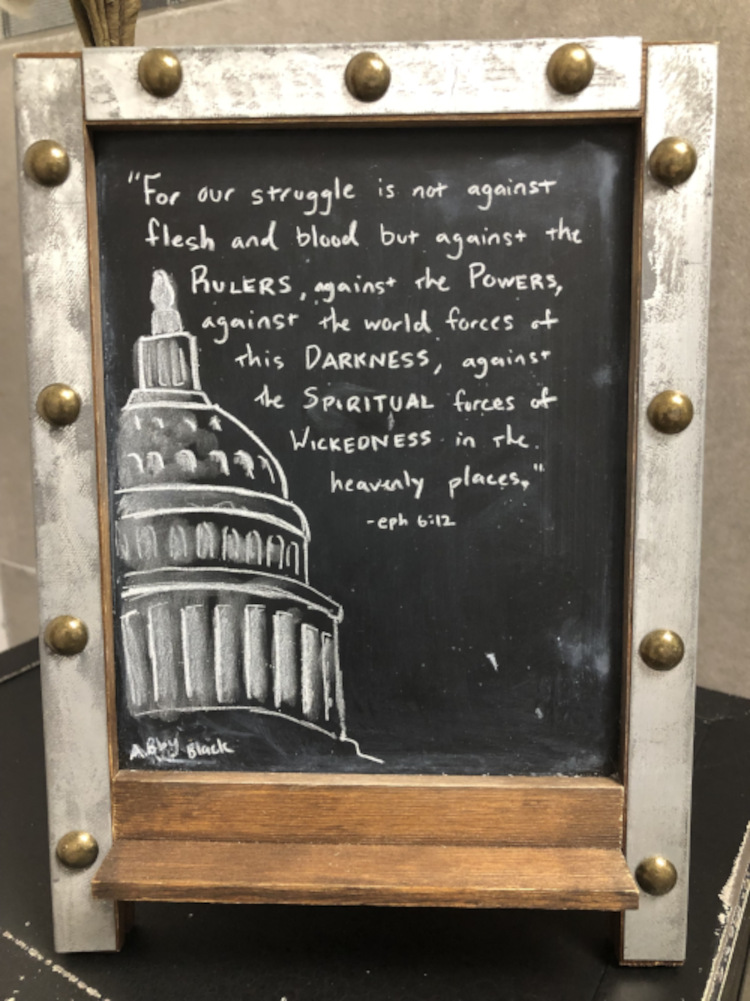 "For our struggle is not against
flesh and blood but against the
RULERS, against the POWERS,
against the world forces of
this DARKNESS, against
the SPIRITUAL forces of
WICKEDNESS in the
heavenly places."
-eph 6:12
Abby Black